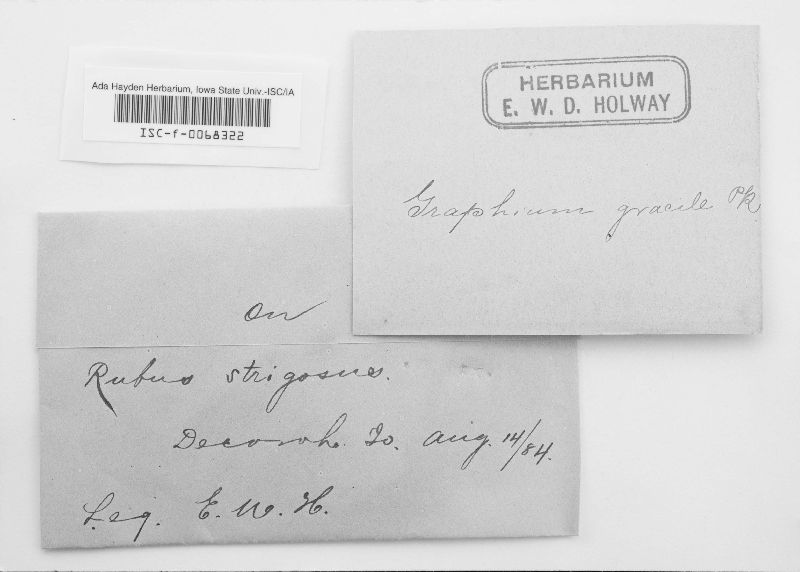 Ada Hayden Herbarium, Iowa State Univ.-ISC/IA
ISC-f-0068322
HERBARIUM
E. W. D. HOLWAY
Graphium gracile Pk.
On
Rubus strigosus.
Decorah. Io. Aug. 14/84.
Leg. E. W. H.